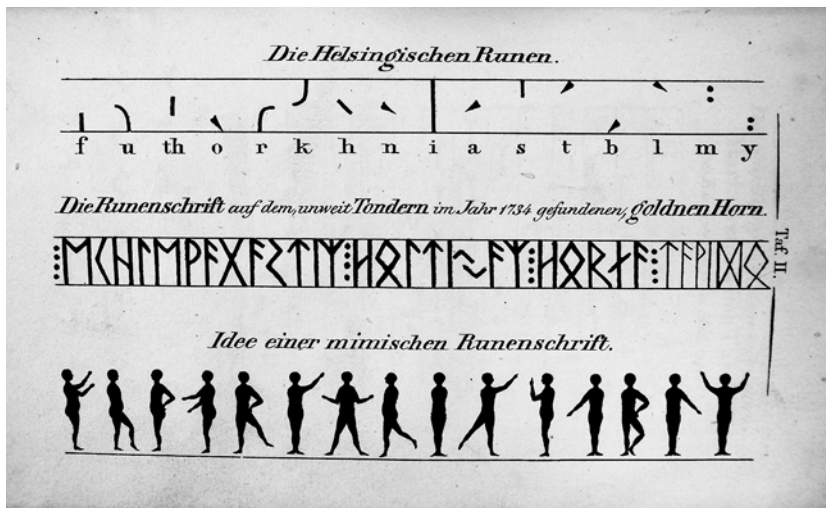 Die Helsingischen Runen.
f u th o r k h n i a s t b l m y
Die Runenschrift auf dem, unweit Tondern im Jahr 1734 gefundenen, goldnen Horn.
⁝ᛖᚲᚺᛚᛖᚹᚨᚷᚨᛊᛏᛁᛉ⁝ᚺᛟᛚᛏᛁᛃᚨᛉ⁝ᚺᛟᚱᚾᚨ⁝ᛏᚨᚹᛁᛞᛟ
Taf. II.
Idee einer mimischen Runenschrift.